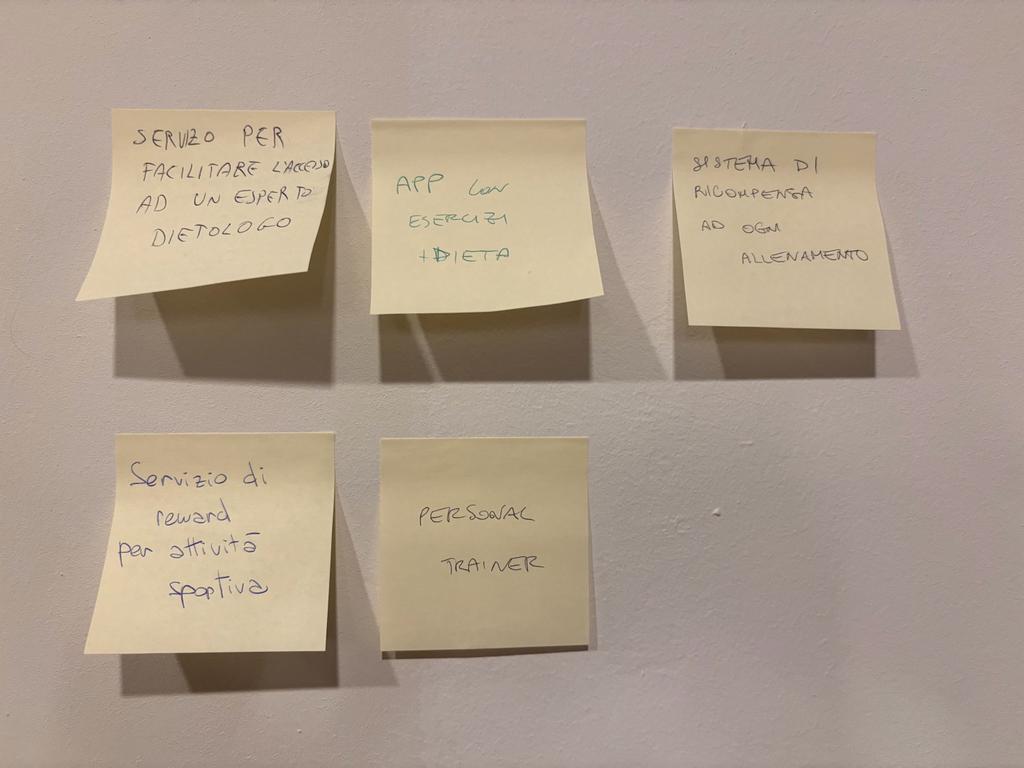 SERVIZO PER
FACILITARE L'ACCESSO
AD UN ESPERTO
DIETOLOGO
APP CON
ESERCIZI
+DIETA
SISTEMA DI
RICOMPENSA
AD OGNI
ALLENAMENTO
Servizio di
reward
per attività
sportiva
PERSONAL
TRAINER